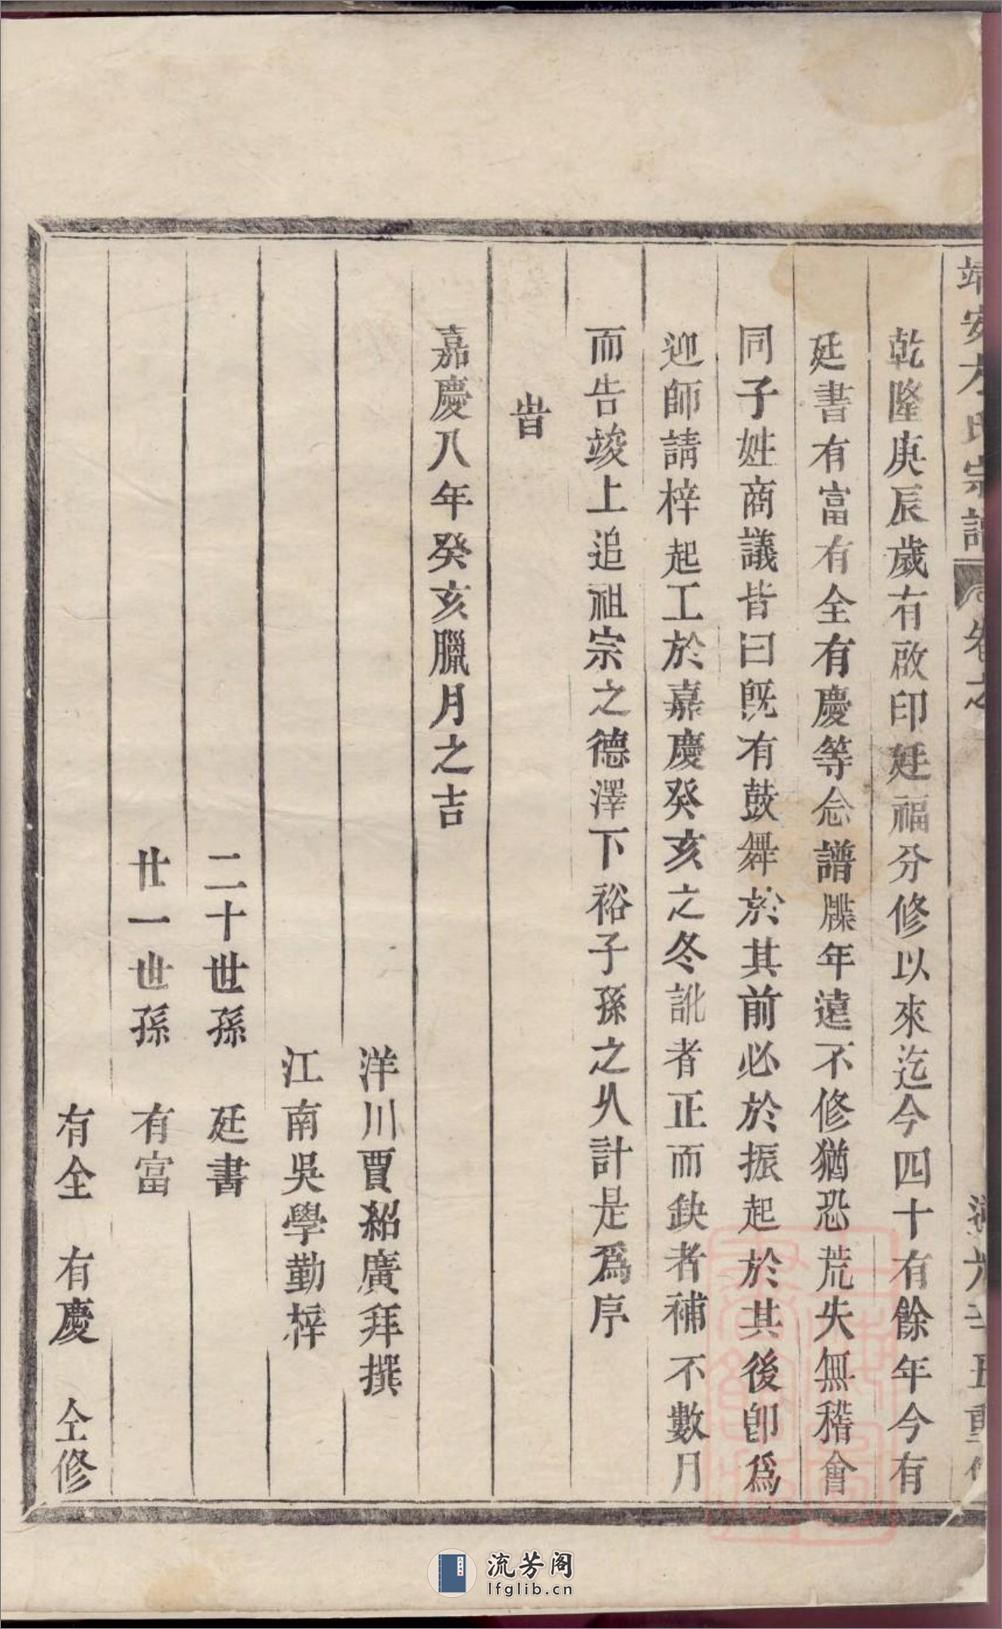 靖安方氏宗譜 卷之
道光辛丑重修
乾隆庚辰歲有啟印廷福分修以來迄今四十有餘年今有
廷書有富有全有慶等念譜牒年遠不修猶恐荒失無稽會
同子姓商議皆曰旣有鼓舞於其前必於振起於其後卽爲
迎師請梓起工於嘉慶癸亥之冬訛者正而缺者補不數月
而告竣上追祖宗之德澤下裕子孫之久計是爲序
旹
嘉慶八年癸亥臘月之吉
洋川賈紹廣拜撰
江南吳學勤梓
二十世孫 廷書
廿一世孫 有富
有全 有慶 仝修
流芳阁
lfglib.cn